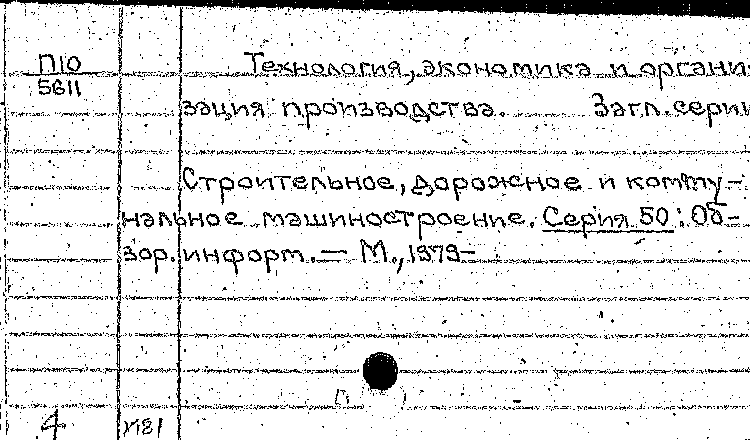 П10
5611
Технология, экономика и органи
зация производства. Загл. серии
Строительное, дорожное и комму-
нальное машиностроение. Серия 50: Об-
зор. информ. — М., 1979-
4